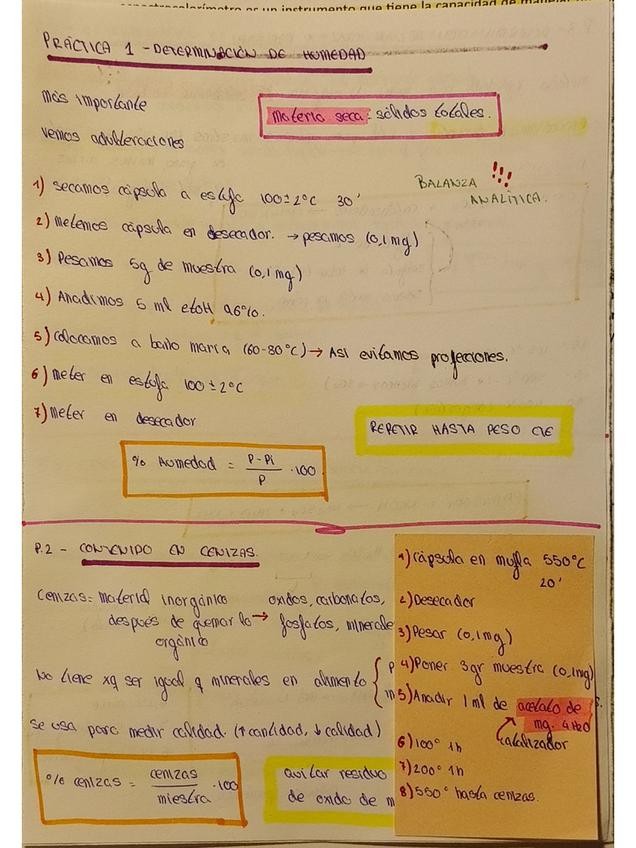 espectrocolorímetro es un instrumento que tiene la capacidad de
PRÁCTICA 1 - DETERMINACIÓN DE HUMEDAD
más importante
materia seca = sólidos totales.
vemos adulteraciones
BALANZA !!!
ANALÍTICA.
1) secamos cápsula a estufa 100 ± 2°C 30'
2) metemos cápsula en desecador. → pesamos (0,1 mg)
3) Pesamos 5g de muestra (0,1 mg)
4) Anadimos 5 ml etoH 96%.
5) colocamos a baño maría (60-80°C) → Así evitamos proyecciones.
6) meter en estufa 100 ± 2°C
7) meter en desecador
REPETIR HASTA PESO CTE
% Humedad = P - Pi / P · 100
P.2 - CONTENIDO EN CENIZAS.
Cenizas = material inorgánico
después de quemar lo
orgánico
→ oxidos, carbonatos,
fosfatos, minerale
No tiene xq ser igual q minerales en alimento { p
m
se usa para medir calidad. (↑cantidad, ↓calidad)
% cenizas = cenizas / miestra · 100
quitar residuo
de oxido de m
1) cápsula en mufla 550°C
20'
2) Desecador
3) Pesar (0,1mg)
4) Poner 3gr muestra (0,1mg)
5) Anadir 1 ml de acetato de
mg. 4H2O
catalizador
6) 100° 1h
7) 200° 1h
8) 550° hasta cenizas.